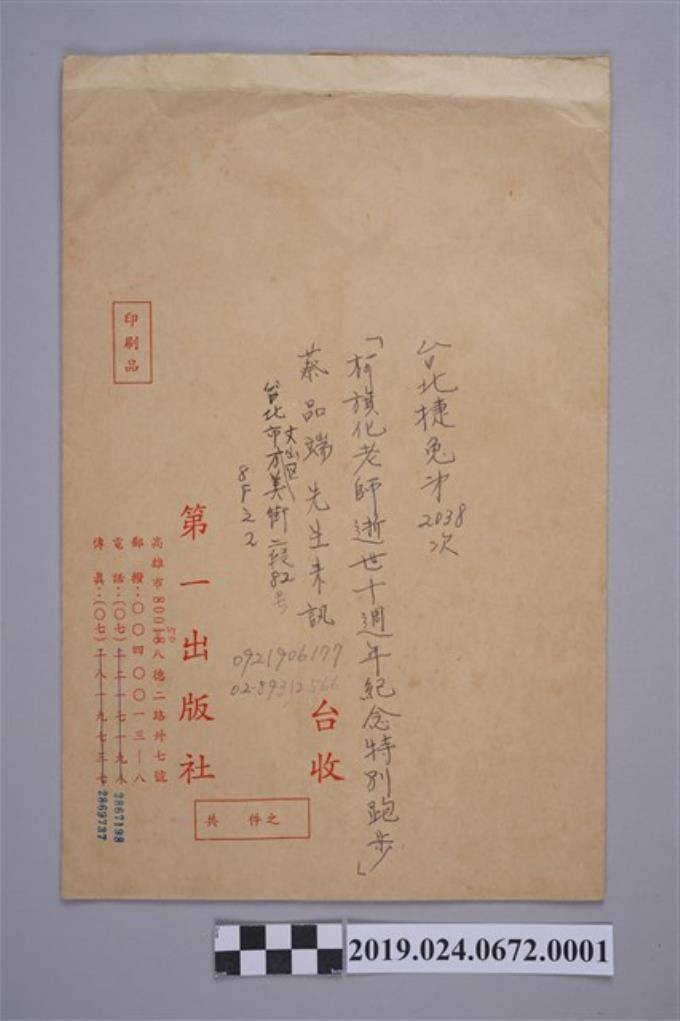 台北捷兔第2038次
「柯旗化老師逝世十週年紀念特別跑步」
蔡品端先生来訊
台北市文山区万美街二段82号
8F之2
0921906177
02-89312566
台收
第一出版社
高雄市80018八德二路卅七號
50
郵撥:〇〇四〇〇一三—八
電話:(〇七)二二一七一九八
2867198
傳真:(〇七)二八一九七三七
2869737
印刷品
共 件之
2019.024.0672.0001